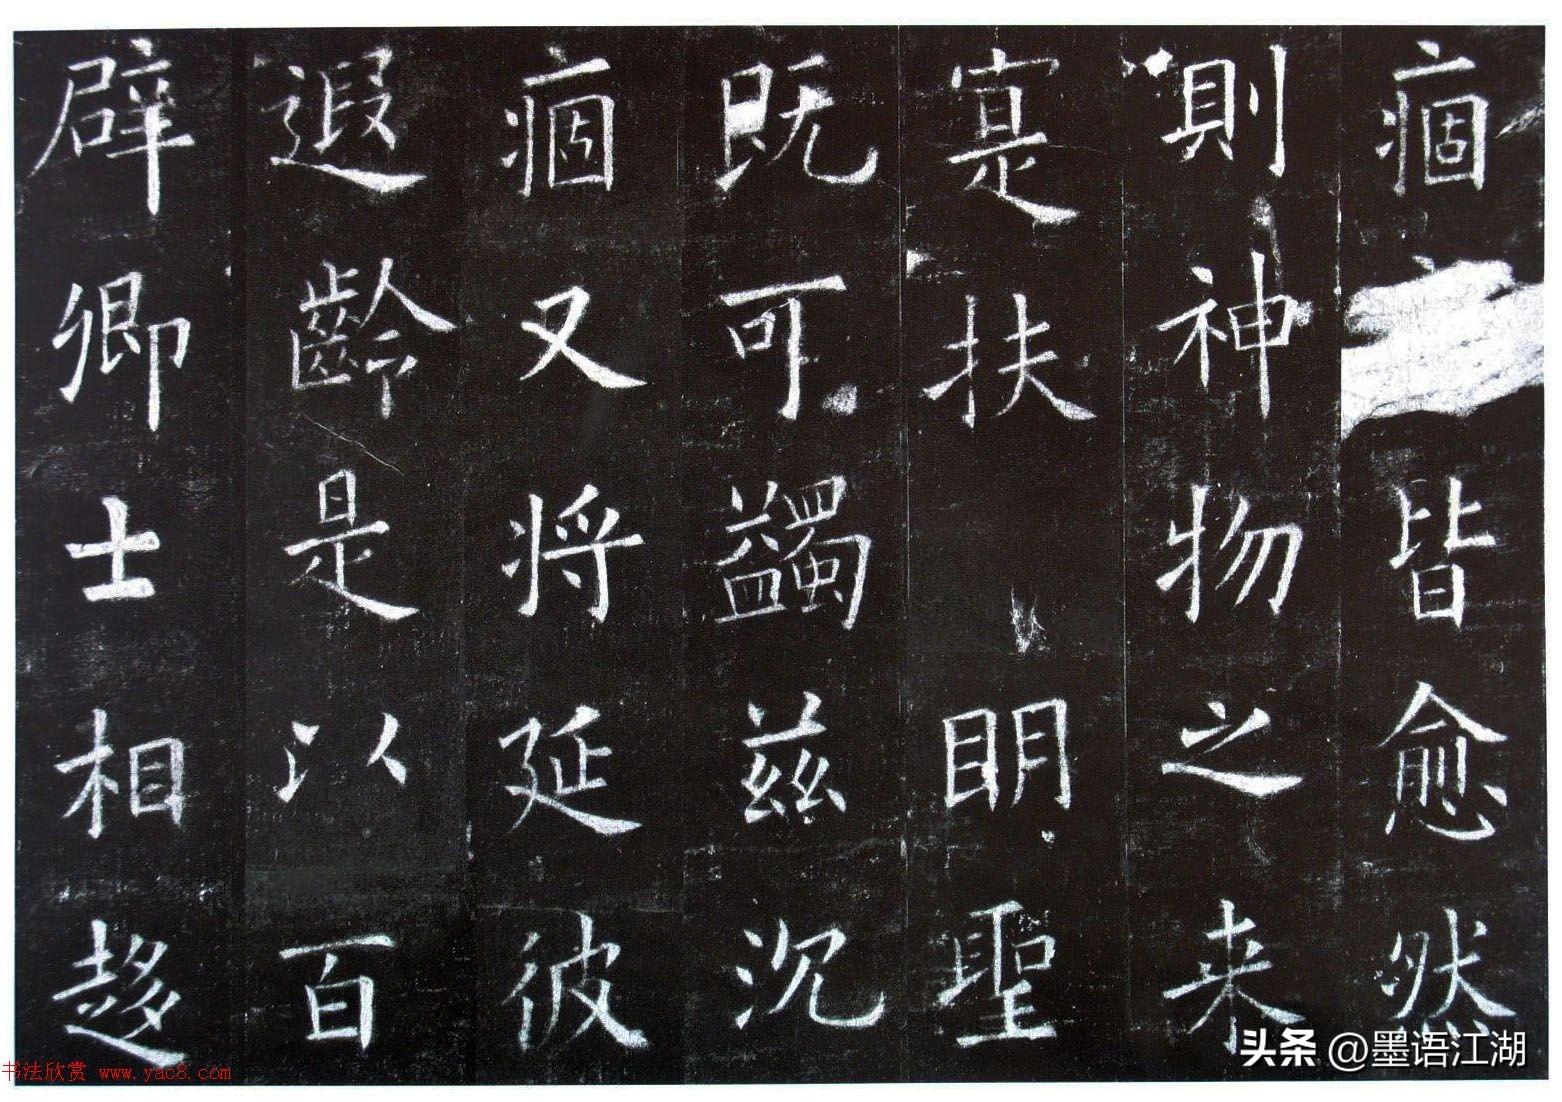 痼皆愈然
則神物之来
寔扶明聖
既可蠲兹沉
痼又将延彼
遐齡是以百
辟卿士相趍
头条 @墨语江湖
书法欣赏 www.yac8.com